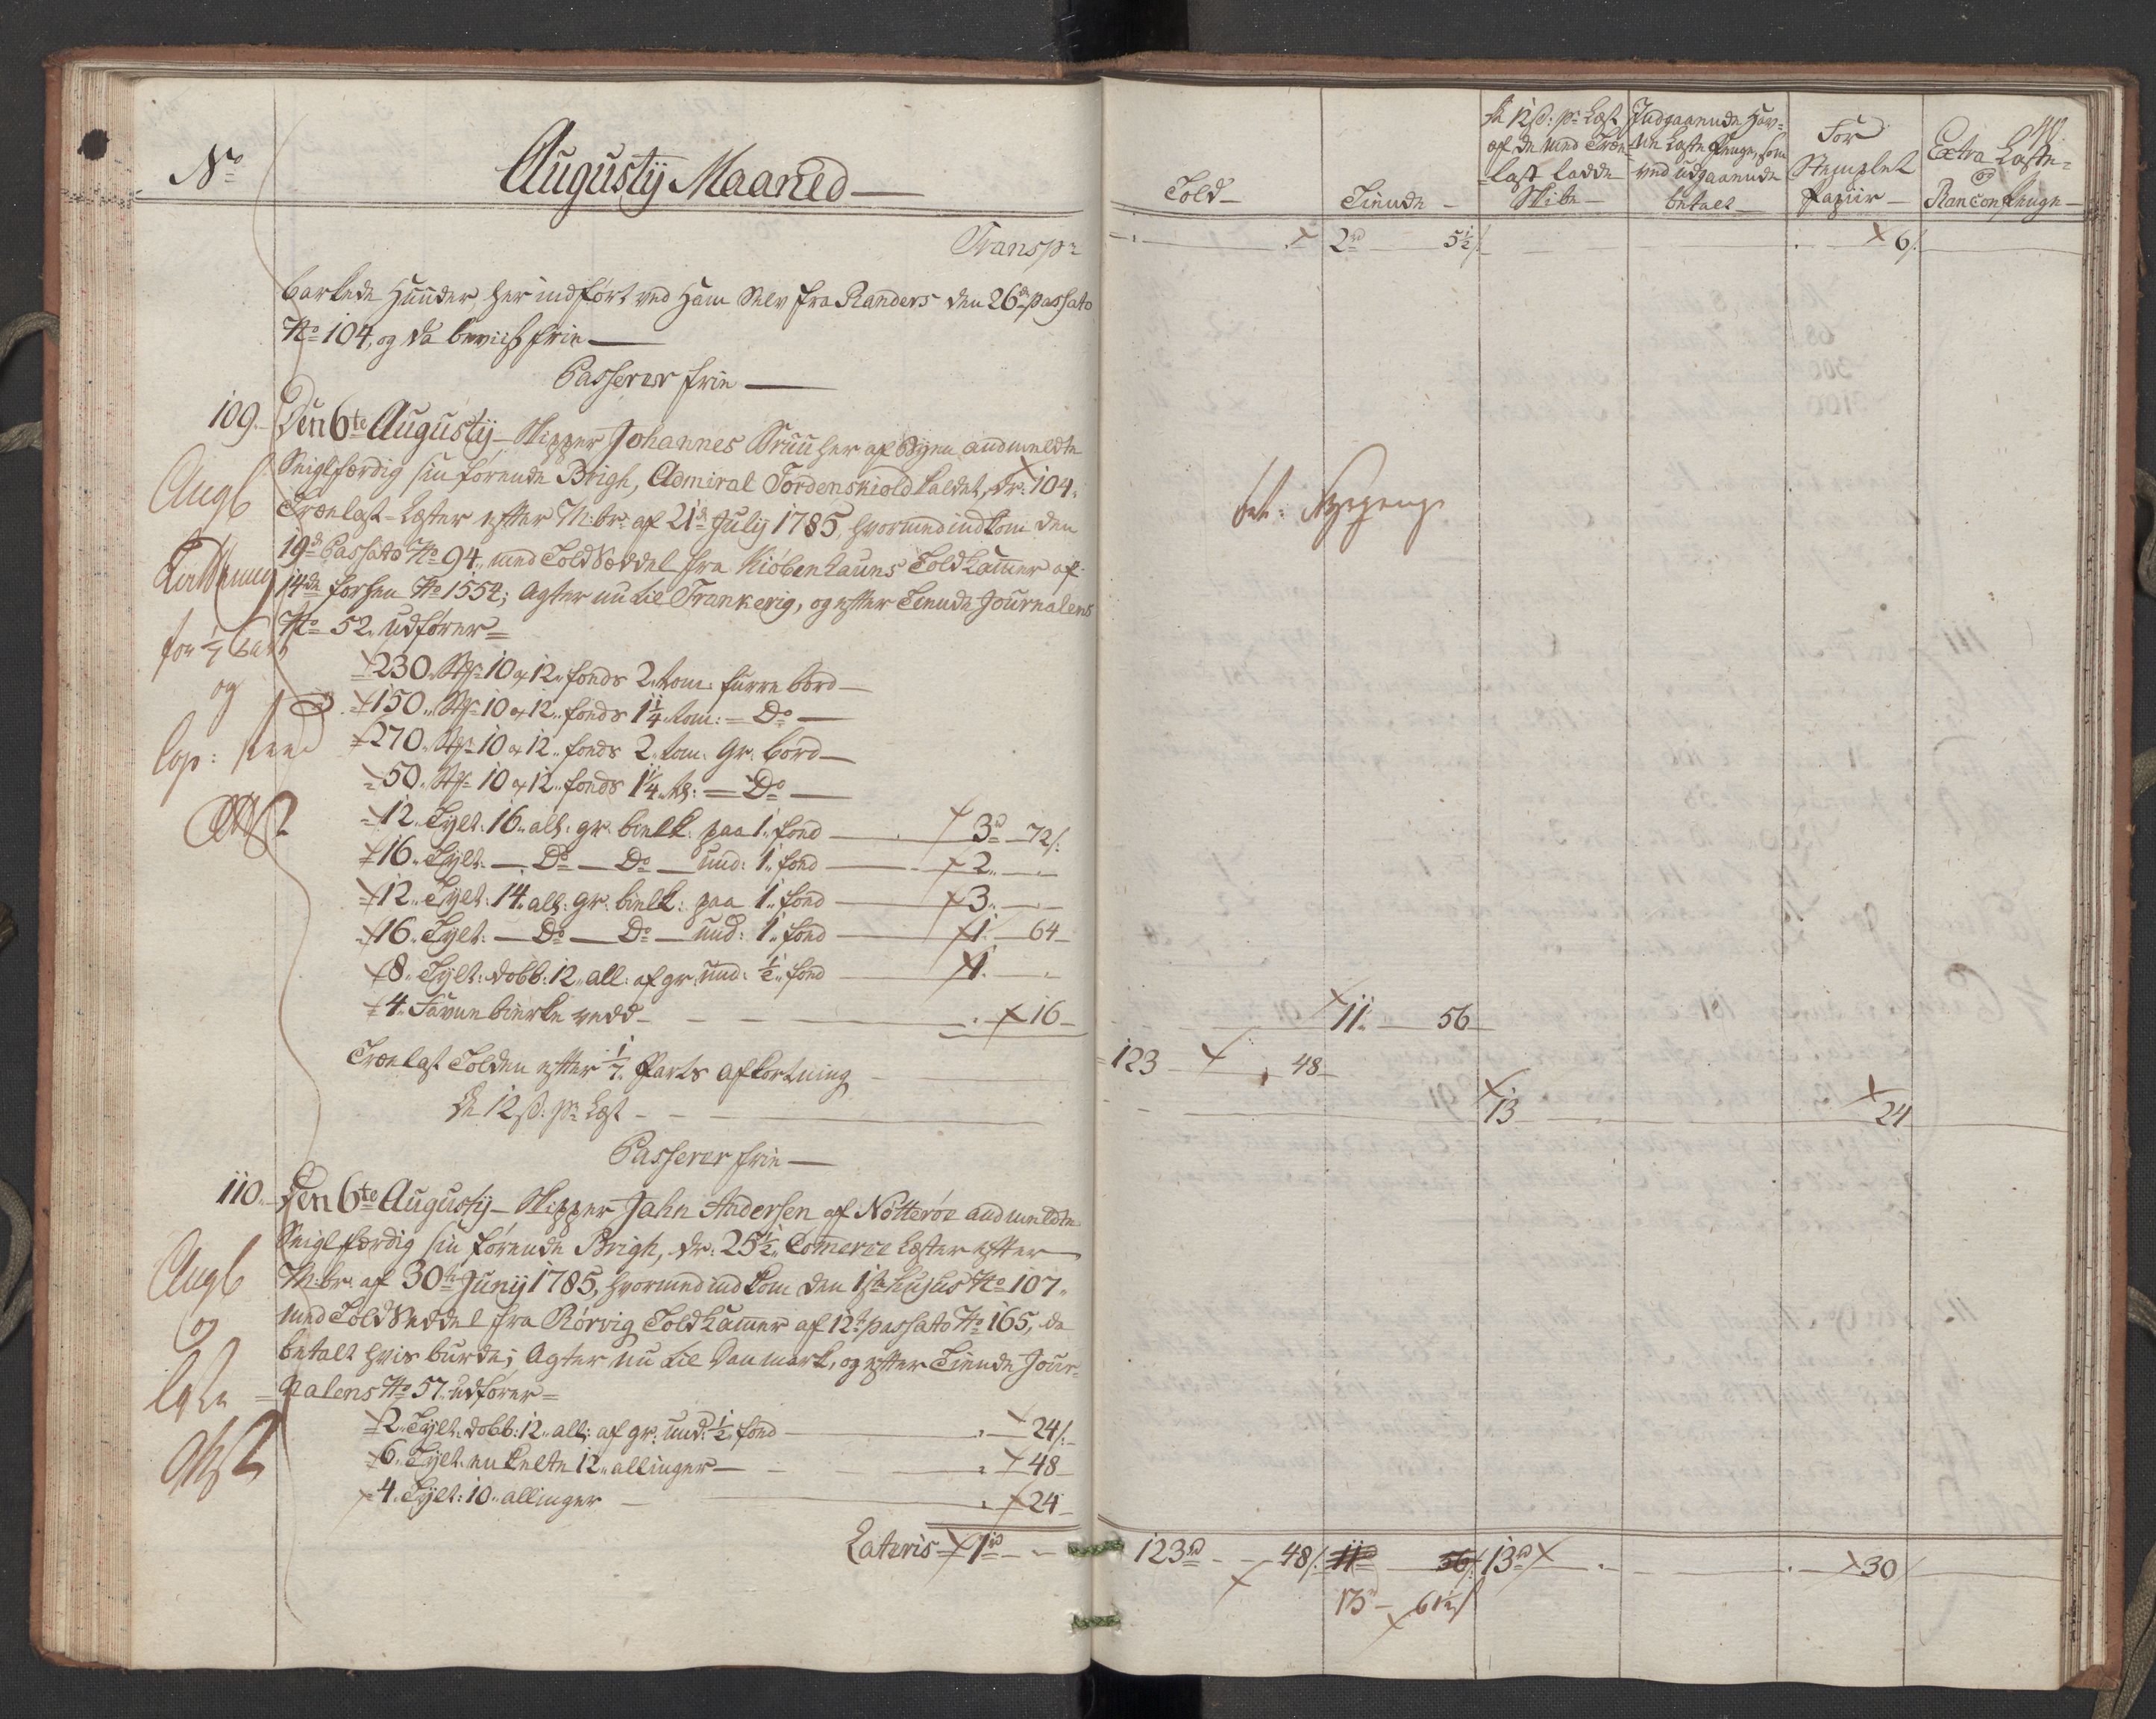 No
Augustij Maaned
Transpr
barkede Huuder her indført ved Ham Selv fra Randers den 26de passato
No 104, og da beviist frie
Passerer frie
109. Den 6te Augustij Skipper Johannes Bruuser af Byen andmeldte
Seiglfærdig sin førende Brigh, Admiral Tordenskiold kaldet, dr: 104.
Trælast-Læster efter M:br: af 21de Julij 1785, hvormed indkom den
19de Passato No 94, med Toldseddel fra Kiøbenhauns Toldkammer af
14de forhen No 1554; Agter nu til Frankerig, og efter Tiende Journalens
No 52. udfører=
230. St: 10 a 12. fonds 2. tom: furre bord
150. St: 10 a 12. fonds 1 1/4. tom: = Do
270. St: 10 a 12. fonds 2. tom: gr: bord
50. St: 10 a 12. fonds 1 1/4. t: = Do
12. Tylt: 16. all: gr: bielk: paa 1. fond 3rd 72/:
16. Tylt: Do Do und: 1. fond 2.
12. Tylt: 14. all: gr: bielk: paa 1. fond 3.
16. Tylt: Do Do und: 1. fond 1. 64
8. Tylt: dobb: 12. all: af gr: und: 1/2. fond 1.
4. Favne birke vedd 16
Trælast Tolden efter 1/7. Parts afkortning
De 12 s: pr Læst
Passerer frie
Aug
for 1/7 Part
og
110. Den 6te Augustij Skipper Jahn Andersen af Nötterøe andmeldte
Seiglfærdig sin førende Brigh, dr: 25 1/2. Comerce Læster efter
M:br: af 30te Junij 1785, hvormed indkom den 1ste hujus No 107.
med Toldseddel fra Rørvig Toldkammer af 12te passato No 165, da
betalt hvis burde; Agter nu til Danmark, og efter Tiende Jour=
nalens No 57. udfører=
2. Tylt: dobb: 12. all: af gr: und: 1/2. fond 24/:
6. Tylt: enkelte 12. allinger 48
4. Tylt: 10. allinger 24
Lateris 1rd
Aug
og
Told
Tiende
De 12 s: pr Læst
af de med Træ=
last ladde
Skibe
Indgaaende Hav=
ne Læste Penge, som
ved udgaaende
betalt
For
Stemplet
Papiir
Extra Læste=
og
Rancon Penge
2rd 5 1/2/: 6/:
11. 56
123 48
13 24
123rd 48/: 11 56/: 13rd 30
13 6 1/2/